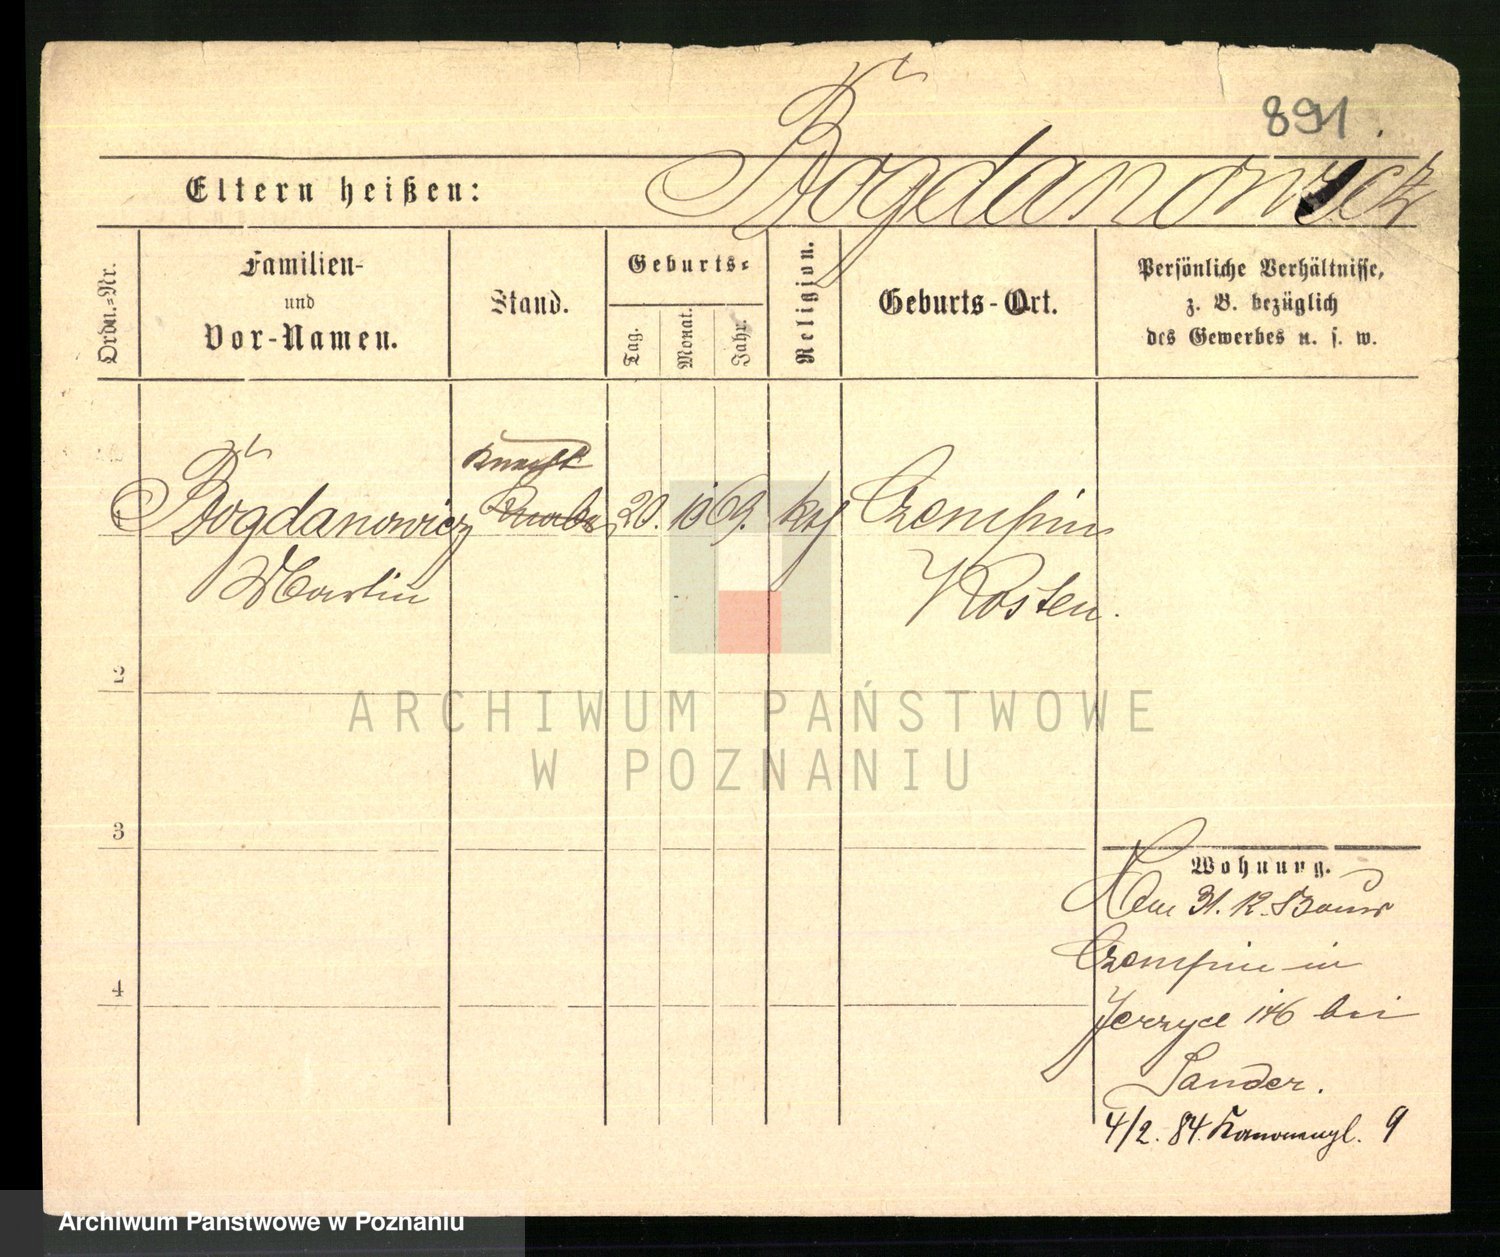 891.
Bogdanowicz
Eltern heißen:
Ordn.=Nr.
Familien-
und
Vor-Namen.
Stand.
Geburts=
Tag.
Monat.
Jahr.
Religion.
Geburts-Ort.
Persönliche Verhältnisse,
z. B. bezüglich
des Gewerbes u. s. w.
Knecht
1 Bogdanowicz 20. 10 69. kth Czempin
Martin Kosten.
2
ARCHIWUM PAŃSTWOWE
W POZNANIU
3
Wohnung.
31. 12.
Czempin in
Jerzyce 116 bei
Sander.
4
4/2. 84. Kanonengl. 9
Archiwum Państwowe w Poznaniu